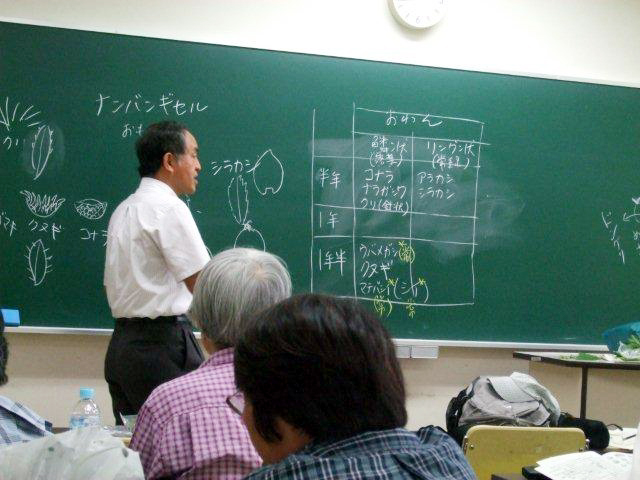 ナンバンギセル
クリ
シラカシ
クヌギ
コナラ
おわん
鱗状 リング状
(落葉) (常緑)
半年 コナラ アラカシ
ナラガシワ シラカシ
クリ(針状)
1年
1年半 ウバメガシ(常)
クヌギ
マテバシイ(シイ)
(常) 常
ドングリ